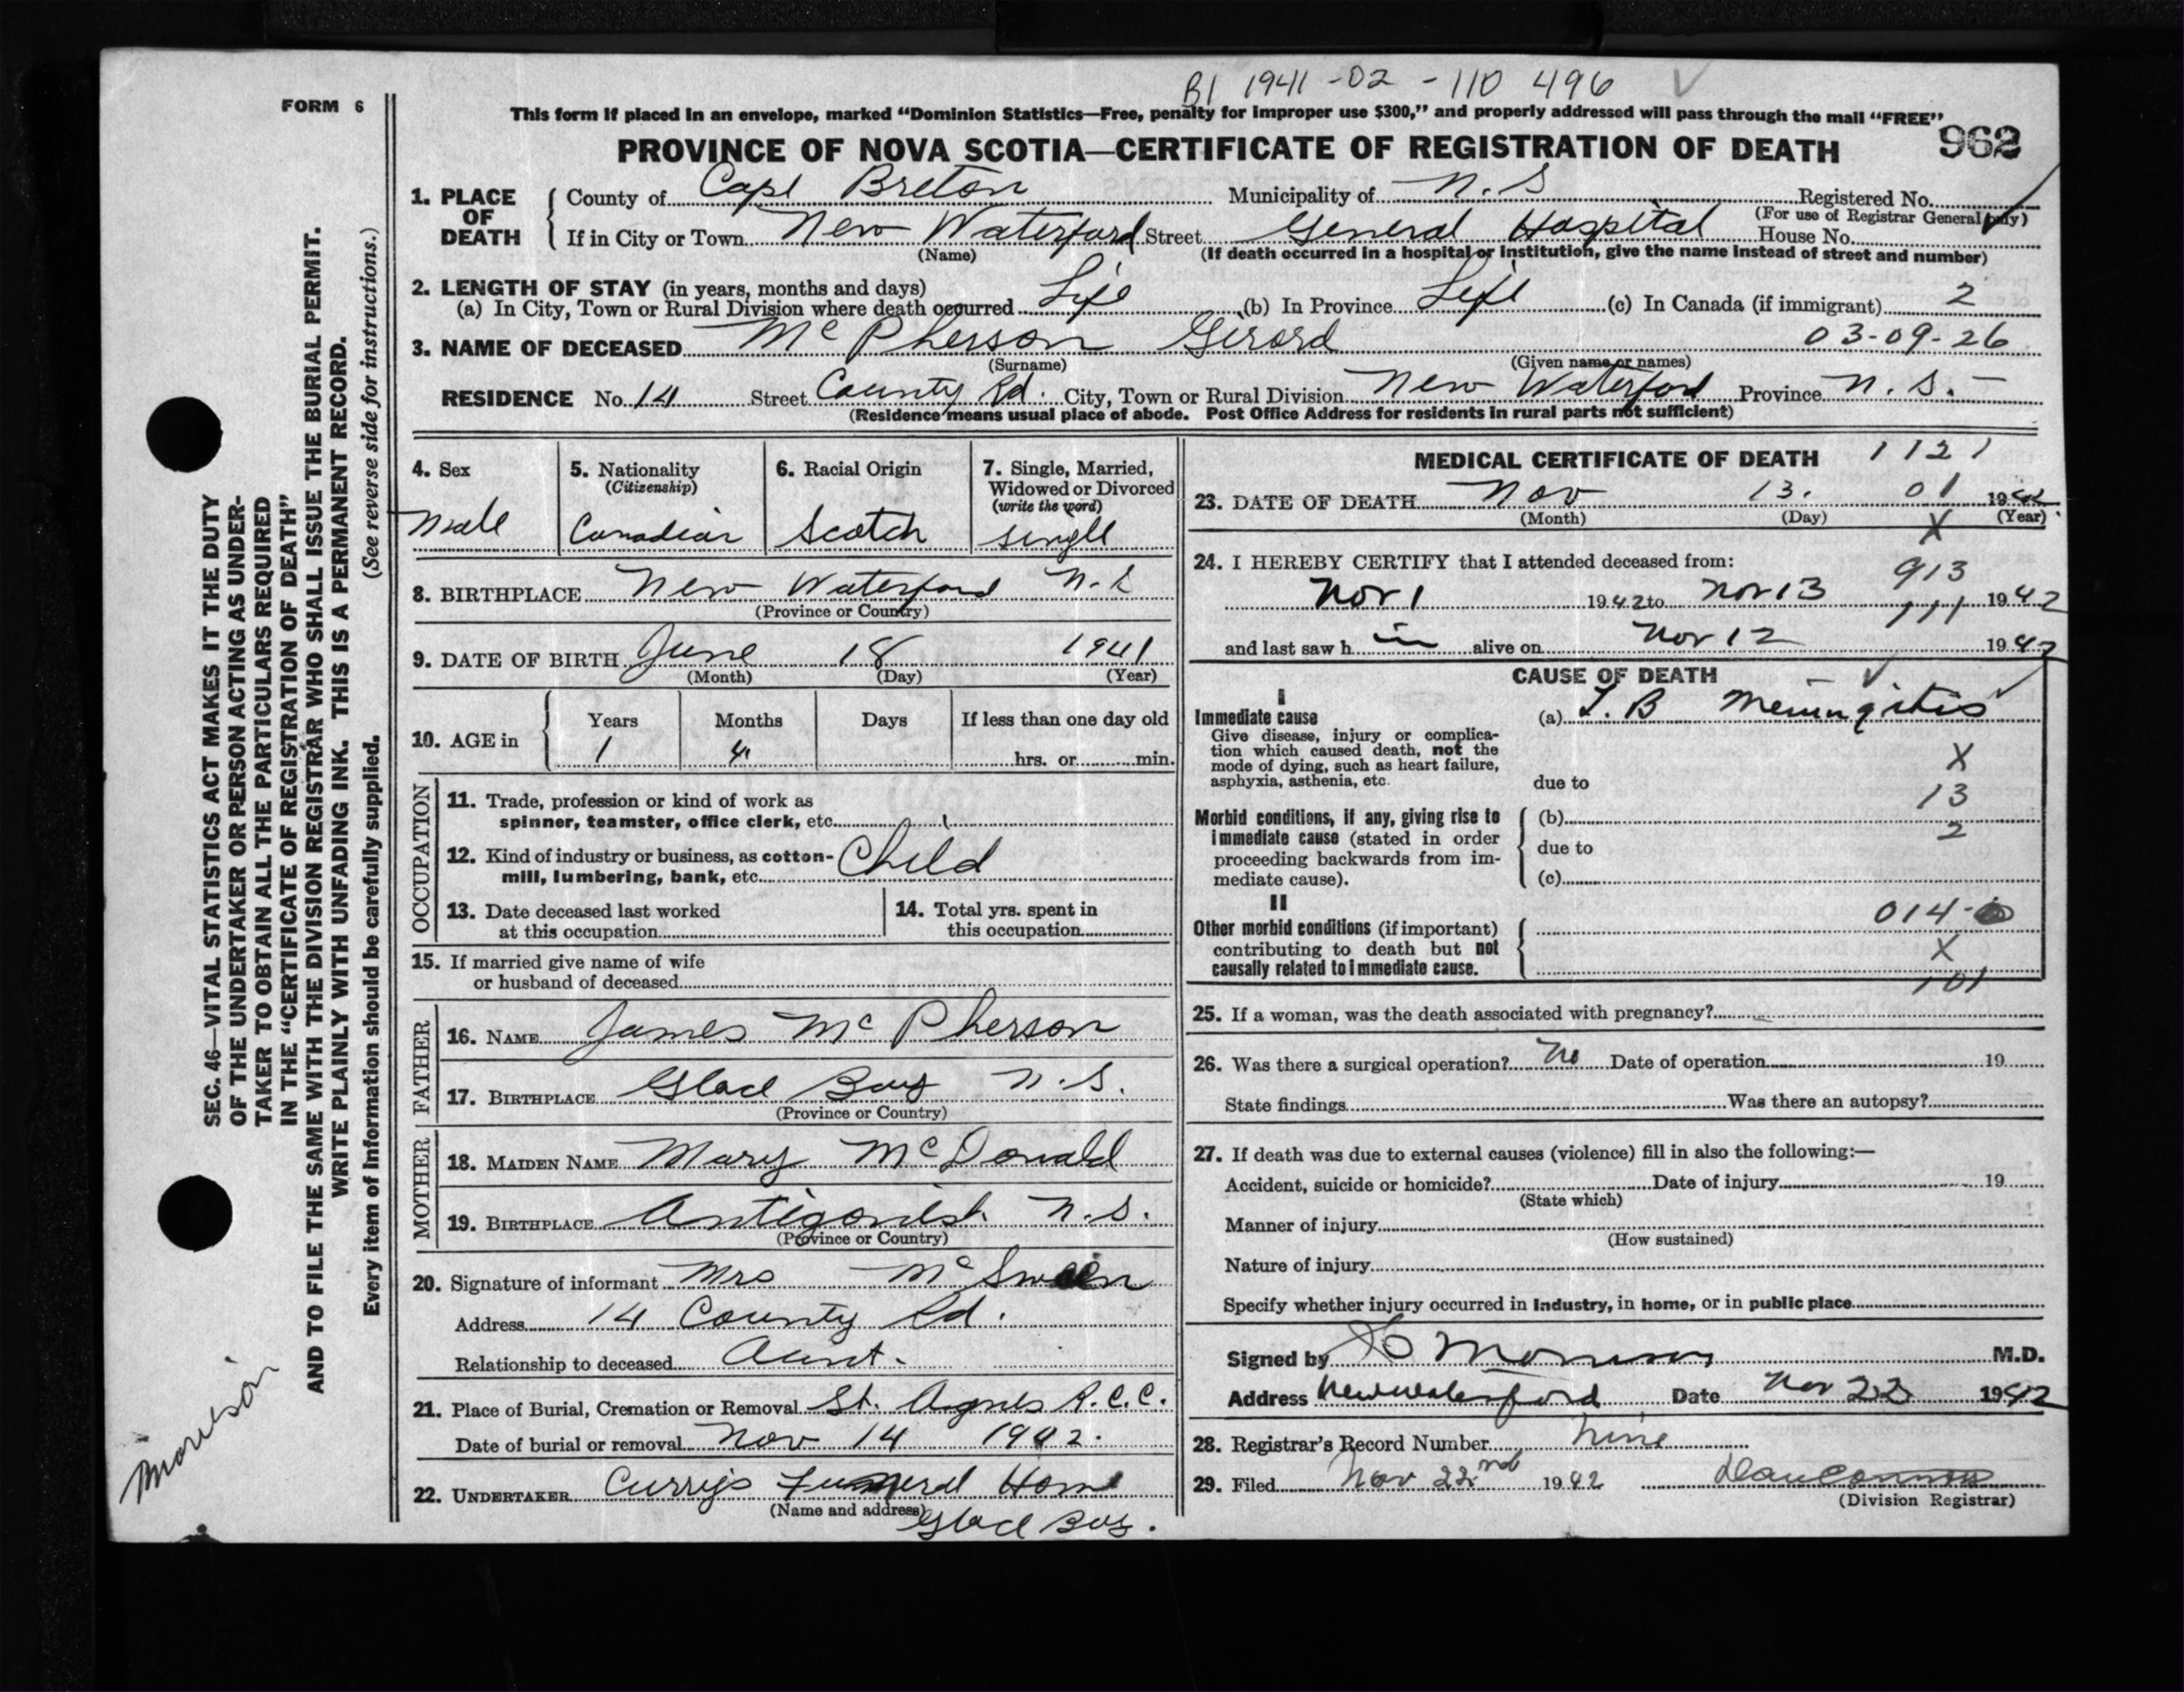 B1 1941-02-110 496
FORM 6
This form if placed in an envelope, marked "Dominion Statistics—Free, penalty for improper use $300," and properly addressed will pass through the mail "FREE"
PROVINCE OF NOVA SCOTIA—CERTIFICATE OF REGISTRATION OF DEATH 962
1. PLACE OF DEATH County of Cape Breton Municipality of N.S Registered No.
(For use of Registrar General only)
If in City or Town New Waterford Street General Hospital House No.
(Name) (If death occurred in a hospital or institution, give the name instead of street and number)
2. LENGTH OF STAY (in years, months and days)
(a) In City, Town or Rural Division where death occurred Life (b) In Province Life (c) In Canada (if immigrant) 2
3. NAME OF DECEASED McPherson Gerard 03-09-26
(Surname) (Given name or names)
RESIDENCE No. 14 Street County Rd. City, Town or Rural Division New Waterford Province N.S.-
(Residence means usual place of abode. Post Office Address for residents in rural parts not sufficient)
4. Sex 5. Nationality (Citizenship) 6. Racial Origin 7. Single, Married, Widowed or Divorced (write the word)
Male Canadian Scotch Single
8. BIRTHPLACE New Waterford N.S
(Province or Country)
9. DATE OF BIRTH June 18 1941
(Month) (Day) (Year)
10. AGE in Years Months Days If less than one day old
1 4 hrs. or min.
OCCUPATION
11. Trade, profession or kind of work as
spinner, teamster, office clerk, etc.
12. Kind of industry or business, as cotton-
mill, lumbering, bank, etc. Child
13. Date deceased last worked
at this occupation
14. Total yrs. spent in
this occupation
15. If married give name of wife
or husband of deceased
FATHER
16. NAME James McPherson
17. BIRTHPLACE Glace Bay N.S.
(Province or Country)
MOTHER
18. MAIDEN NAME Mary McDonald
19. BIRTHPLACE Antigonish N.S.
(Province or Country)
20. Signature of informant Mrs McSween
Address 14 County Rd.
Relationship to deceased Aunt.
21. Place of Burial, Cremation or Removal St. Agnes R.C.C.
Date of burial or removal Nov 14 1942.
22. UNDERTAKER Currys Funeral Home
(Name and address) Glace Bay.
MEDICAL CERTIFICATE OF DEATH 1121
23. DATE OF DEATH Nov 13. 01 1942
(Month) (Day) X (Year)
24. I HEREBY CERTIFY that I attended deceased from:
913
Nov 1 1942 to Nov 13 1942
111
and last saw h im alive on Nov 12 1942
CAUSE OF DEATH
I
Immediate cause (a) T.B Meningitis
Give disease, injury or complica-
tion which caused death, not the
mode of dying, such as heart failure, X
asphyxia, asthenia, etc. due to
13
Morbid conditions, if any, giving rise to (b)
2
immediate cause (stated in order due to
proceeding backwards from im-
mediate cause). (c)
II
014-0
Other morbid conditions (if important)
contributing to death but not X
causally related to immediate cause.
101
25. If a woman, was the death associated with pregnancy?
26. Was there a surgical operation? No Date of operation 19
State findings Was there an autopsy?
27. If death was due to external causes (violence) fill in also the following:—
Accident, suicide or homicide? Date of injury 19
(State which)
Manner of injury
(How sustained)
Nature of injury
Specify whether injury occurred in industry, in home, or in public place
Signed by Morrison M.D.
Address New Waterford Date Nov 22 1942
28. Registrar's Record Number nine
29. Filed Nov 22nd 1942
(Division Registrar)
SEC. 46—VITAL STATISTICS ACT MAKES IT THE DUTY
OF THE UNDERTAKER OR PERSON ACTING AS UNDER-
TAKER TO OBTAIN ALL THE PARTICULARS REQUIRED
IN THE "CERTIFICATE OF REGISTRATION OF DEATH"
AND TO FILE THE SAME WITH THE DIVISION REGISTRAR WHO SHALL ISSUE THE BURIAL PERMIT.
WRITE PLAINLY WITH UNFADING INK. THIS IS A PERMANENT RECORD.
Every item of information should be carefully supplied. (See reverse side for instructions.)
Morrison